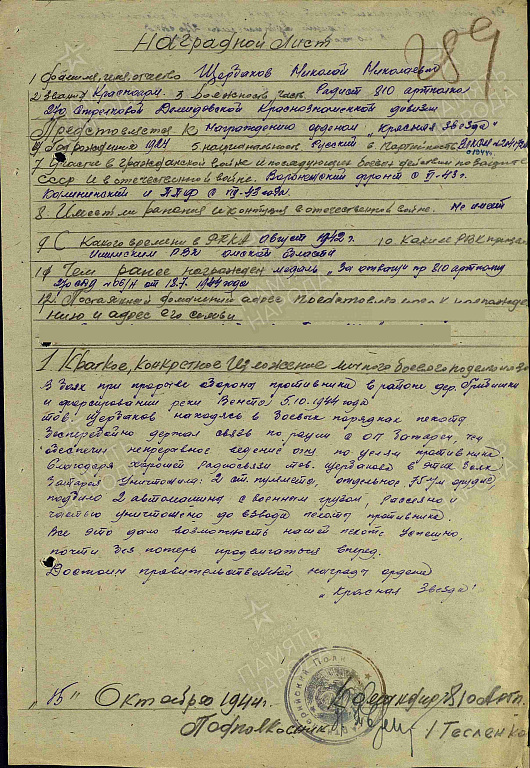 389
Наградной Лист
1 Фамилия, имя, отчество Щербаков Николай Николаевич
2 Звание Красноарм. 3 Должность, часть Радист 810 артполка
270 Стрелковой Демидовской Краснознаменной дивизии
Представляется к Награждению орденом "Красная Звезда"
4 Год рождения 1924 5 национальность Русский 6 Партийность ВЛКСМ
7 Участие в гражданской войне и последующих боевых действиях по защите
СССР и в отечественной войне. Воронежский фронт с II-43 г.
Калининский и I ПФ с VIII-43 года.
8 Имеет ли ранения и контузии в отечественной войне. Не имеет
9 С Какого времени в РККА Август 1942 г. 10 Каким РВК призван
Ишимским РВК Омской области
11 Чем ранее награжден медаль "За отвагу" пр 810 артполка
270 СД от 18.7. 1944 года
12 Постоянный домашний адрес представляемого к награжде
нию и адрес его семьи
1. Краткое, конкретное Изложение личного боевого подвига
В боях при прорыве обороны противника в районе дер.
и форсировании реки Вента 5.10.1944 года
тов. Щербаков находясь в боевых порядках пехоты
бесперебойно держал связь по рации с ОП батареи, чем
обеспечил непрерывное ведение огня по целям противника.
Благодаря хорошей Радиосвязи тов. Щербакова в этих боях
батарея уничтожила: 2 ст. пулемета, отдельное орудие
подбито 2 автомашины с военным грузом, рассеяно и
частью уничтожено до взвода пехоты противника.
Все это дало возможность нашей пехоте успешно,
почти без потерь продвигаться вперед.
Достоин правительственной награды ордена
"Красная Звезда"
"15" Октября 1944 г. Командир 810 Артп.
Подполковник / Тесленко
ПАМЯТЬ НАРОДА